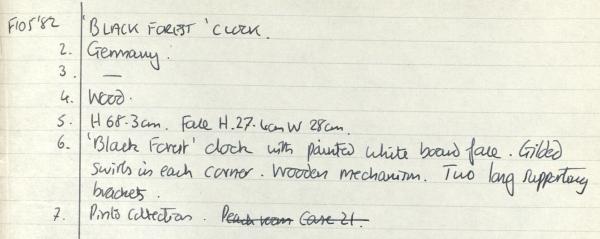 F105'82 'BLACK FOREST' CLOCK.
2. Germany.
3. —
4. Wood.
5. H 68.3cm. Face H.27.6cm W 28cm.
6. 'Black Forest' clock with painted white board face. Gilded
swirls in each corner. Wooden mechanism. Two long supporting
brackets.
7. Pinto collection. Peach room Case 21.